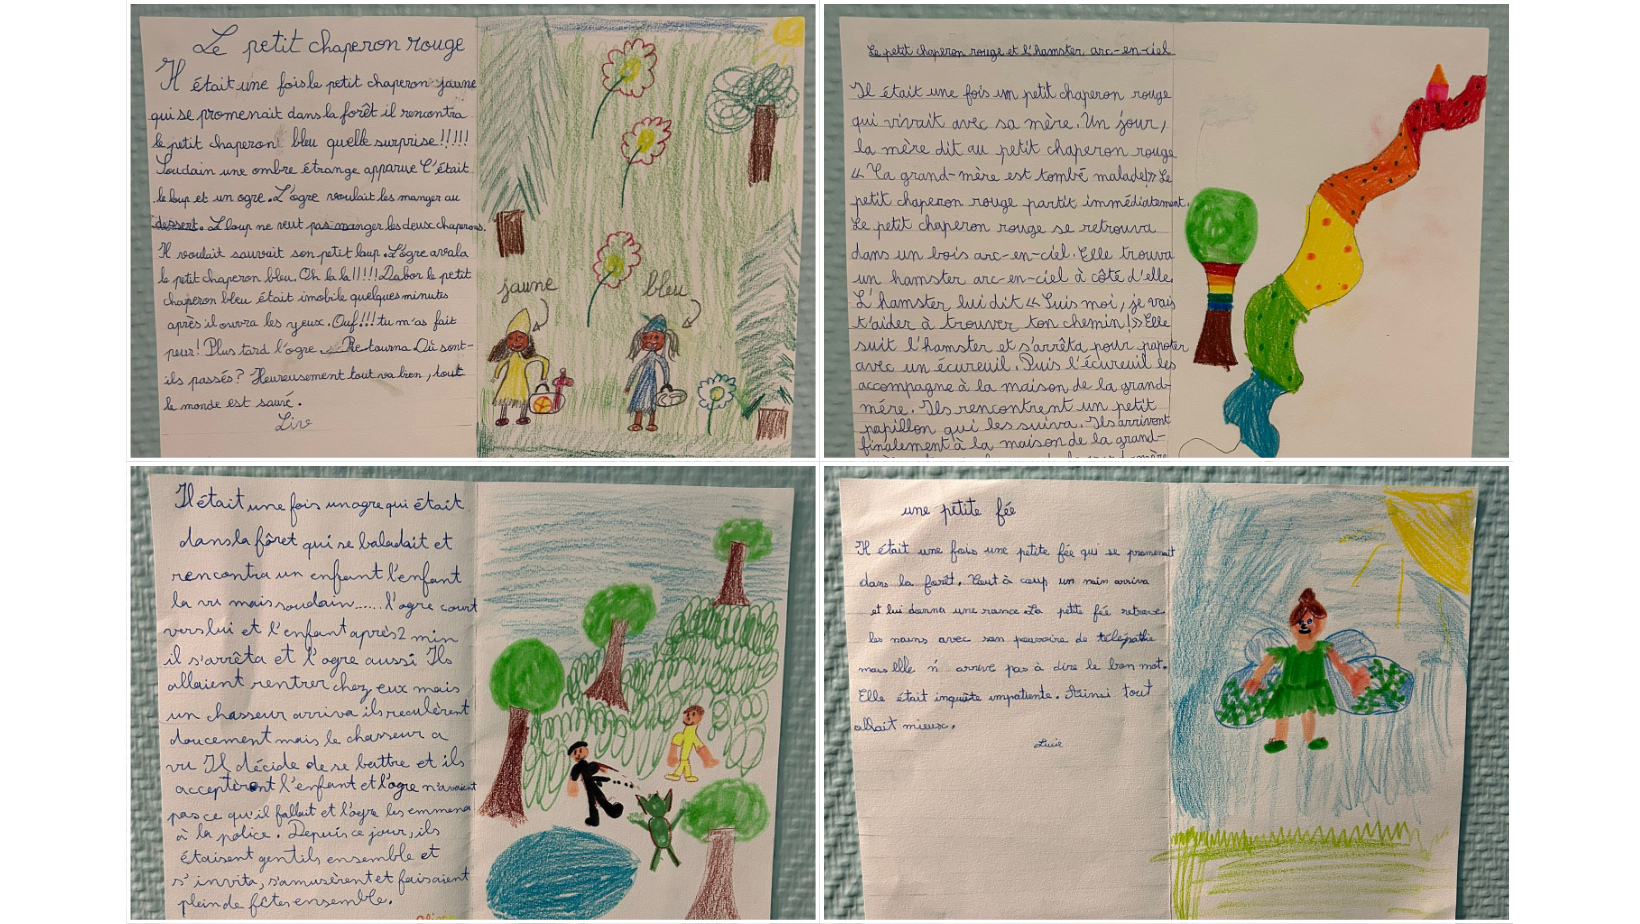 Le petit chaperon rouge
Il était une fois le petit chaperon jaune
qui se promenait dans la forêt il rencontra
le petit chaperon bleu quelle surprise!!!!!
Soudain une ombre étrange apparue C'était
le loup et un ogre. L'ogre voulait les manger au
dessert. L loup ne veut pas manger les deux chaperons.
Il voulait sauvait son petit loup. L'ogre avala
le petit chaperon bleu. Oh la la!!!!! Dabor le petit
chaperon bleu était imobile quelques minutes
après il ouvra les yeux. Ouf!!! tu m'as fait
peur! Plus tard l'ogre Re tourna Où sont-
ils passés? Heureusement tout va bien, tout
le monde est sauvé.
Liv
jaune
bleu
Le petit chaperon rouge et l'hamster arc-en-ciel
Il était une fois un petit chaperon rouge
qui vivrait avec sa mère. Un jour,
la mère dit au petit chaperon rouge
« Ta grand-mère est tombé malade!» Le
petit chaperon rouge partit immédiatement.
Le petit chaperon rouge se retrouva
dans un bois arc-en-ciel. Elle trouva
un hamster arc-en-ciel à côté d'elle.
L'hamster lui dit « Suis moi, je vais
t'aider à trouver ton chemin!» Elle
suit l'hamster et s'arrêta pour papoter
avec un écureuil. Puis l'écureuil les
accompagne à la maison de la grand-
mère. Ils rencontrent un petit
papillon qui les suiva. Ils arrivont
finalement à la maison de la grand-
Il était une fois un ogre qui était
dans la fôret qui se baladait et
rencontra un enfant l'enfant
la vu mais soudain...... l'ogre court
vers lui et l'enfant après 2 min
il s'arrêta et l'ogre aussi Ils
allaient rentrer chez eux mais
un chasseur arriva ils reculèrent
doucement mais le chasseur a
vu Il décide de se battre et ils
acceptèrent l'enfant et l'ogre n'avaient
pas ce qu'il fallait et l'ogre les emmena
à la police. Depuis ce jour, ils
étaisent gentils ensemble et
s'invita, s'amusèrent et faisaient
plein de fêtes ensemble.
une petite fée
Il était une fois une petite fée qui se promenait
dans la forêt. Tout à coup un nain arriva
et lui donna une rance. La petite fée retrouve
les nains avec son pouvoire de télépathie
mais elle n' arrive pas à dire le bon mot.
Elle était inquiète impatiente. Ainsi tout
allait mieux.
Lucie